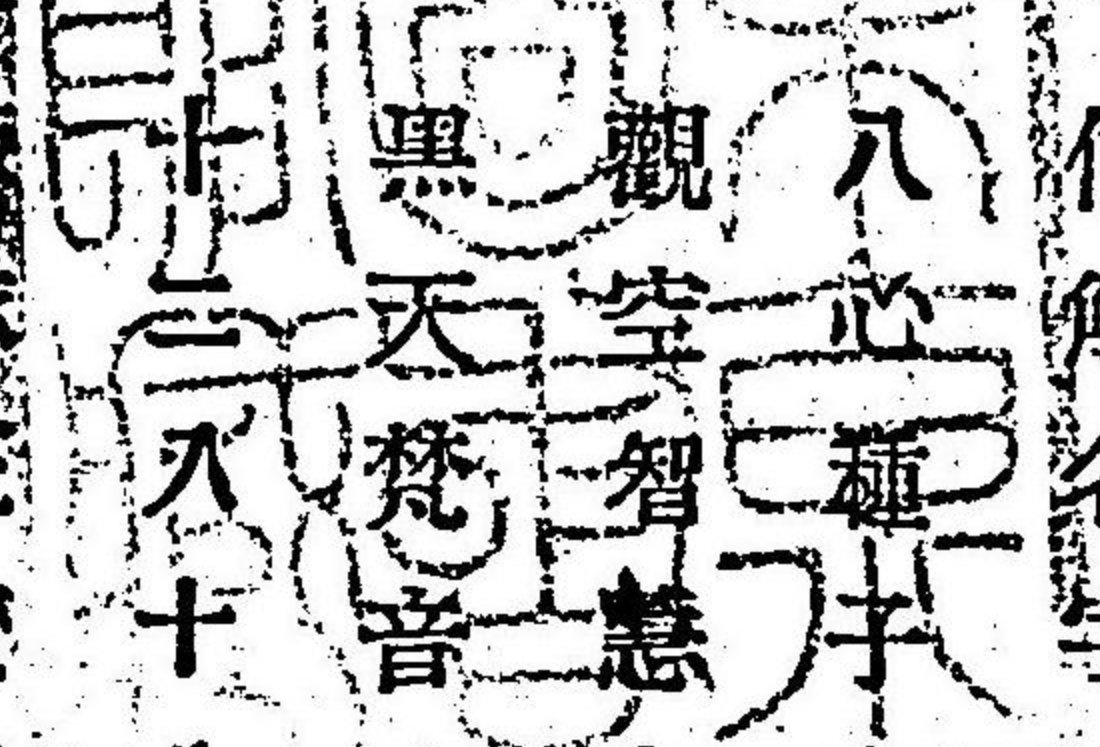 八心種子
觀空智慧
黑天梵音
十二八十